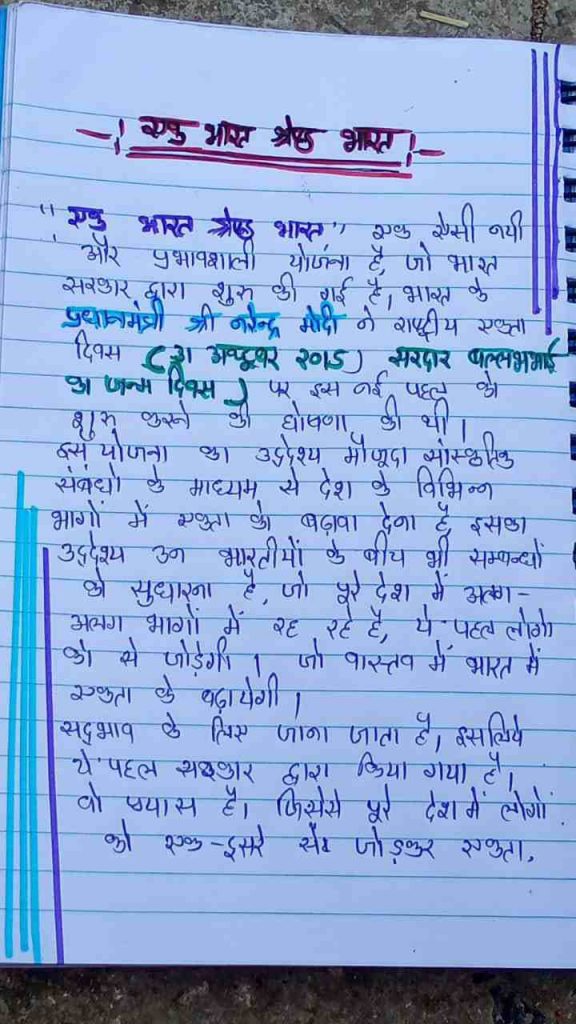 एक भारत श्रेष्ठ भारत
"एक भारत श्रेष्ठ भारत" एक ऐसी नयी
और प्रभावशाली योजना है, जो भारत
सरकार द्वारा शुरु की गई है, भारत के
प्रधानमंत्री श्री नरेन्द्र मोदी ने राष्ट्रीय एकता
दिवस (31 अक्टूबर 2015) सरदार वल्लभभाई
का जन्म दिवस) पर इस नई पहल को
शुरु करने की घोषणा की थी।
इस योजना का उद्देश्य मौजूदा सांस्कृतिक
संबंधो के माध्यम से देश के विभिन्न
भागों में एकता को बढ़ावा देना है, इसका
उद्देश्य उन भारतीयों के बीच भी सम्बन्धों
को सुधारना है, जो पूरे देश में अलग-
अलग भागों में रह रहे है, ये पहल लोगो
को से जोड़ेगी। जो वास्तव में भारत में
एकता के बढ़ायेगी।
सद्भाव के लिए जाना जाता है, इसलिये
ये पहल सरकार द्वारा किया गया है,
वो प्यास है। जिसेसे पूरे देश में लोगों
को एक-दुसरे से जोड़कर एकता,